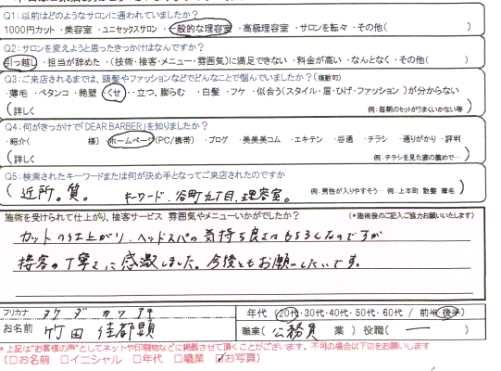 Q1:以前はどのようなサロンに通われていましたか?
1000円カット・美容室・ユニセックスサロン・一般的な理容室・高級理容室・サロンを転々・その他(　　)
Q2:サロンを変えようと思ったきっかけはなんですか?
引っ越し・担当が辞めた・(技術・接客・メニュー・雰囲気)に満足できない・料金が高い・なんとなく・その他(　　)
Q3:ご来店されるまでは、頭髪やファッションなどでどんなことで悩んでいましたか?(複数可)
・薄毛・ペタンコ・絶壁・くせ・立つ、膨らむ・白髪・フケ・似合う(スタイル・眉・ひげ・ファッション)が分からない
(詳しく　　例:毎朝のセットがうまくいかない等)
Q4:何がきっかけで「DEAR BARBER」を知りましたか?
・紹介(　　様)・ホームページ(PC/携帯)・ブログ・美美美コム・エキテン・谷通・チラシ・通りがかり・評判
(詳しく　　例:チラシを見た妻の薦めで…)
Q5:検索されたキーワードまたは何が決め手となってご来店されたのですか
近所。質。 キーワード、谷町九丁目、理容室。 例:男性が入りやすそう 例:上本町 散髪 薄毛)
施術を受けられて仕上がり、接客サービス 雰囲気やメニューいかがでしたか? (*施術後のご記入ご協力お願いいたします)
カットの仕上がり、ヘッドスパの気持ち良さはもちろんなのですが
接客の丁寧さに感激しました。今後ともお願いしたいです。
フリガナ タケダ
お名前 竹田 佳都顕
年代(20代・30代・40代・50代・60代 / 前半・後半)
職業(公務員 業) 役職(ー)
*上記は"お客様の声"としてネットや印刷物などに掲載させて頂くことがございます。不可の場合以下☑をお願いします
(□お名前 □イニシャル □年代 □職業 ☑お写真)